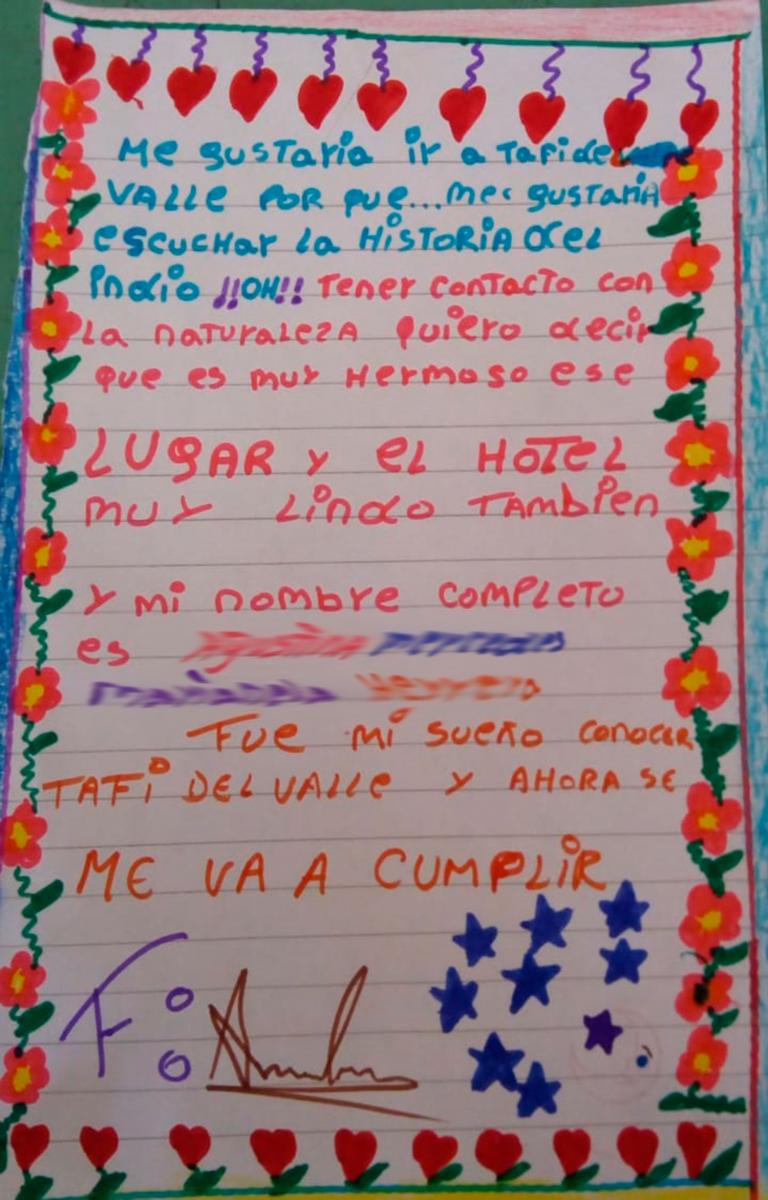 Me gustaria ir a Tafi de
VALLE POR que... me gustaria
escuchar la HISTORIA del
indio !!OH!! Tener contacto con
La naturaleza quiero decir
que es muy Hermoso ese
LUGAR y el HOTEL
muy Lindo TAMbien
y mi nombre COMPLETO
es
Fue mi sueño conocer
TAFí DEL VAlle y AHORA SE
ME VA A CUMPLIR
F: